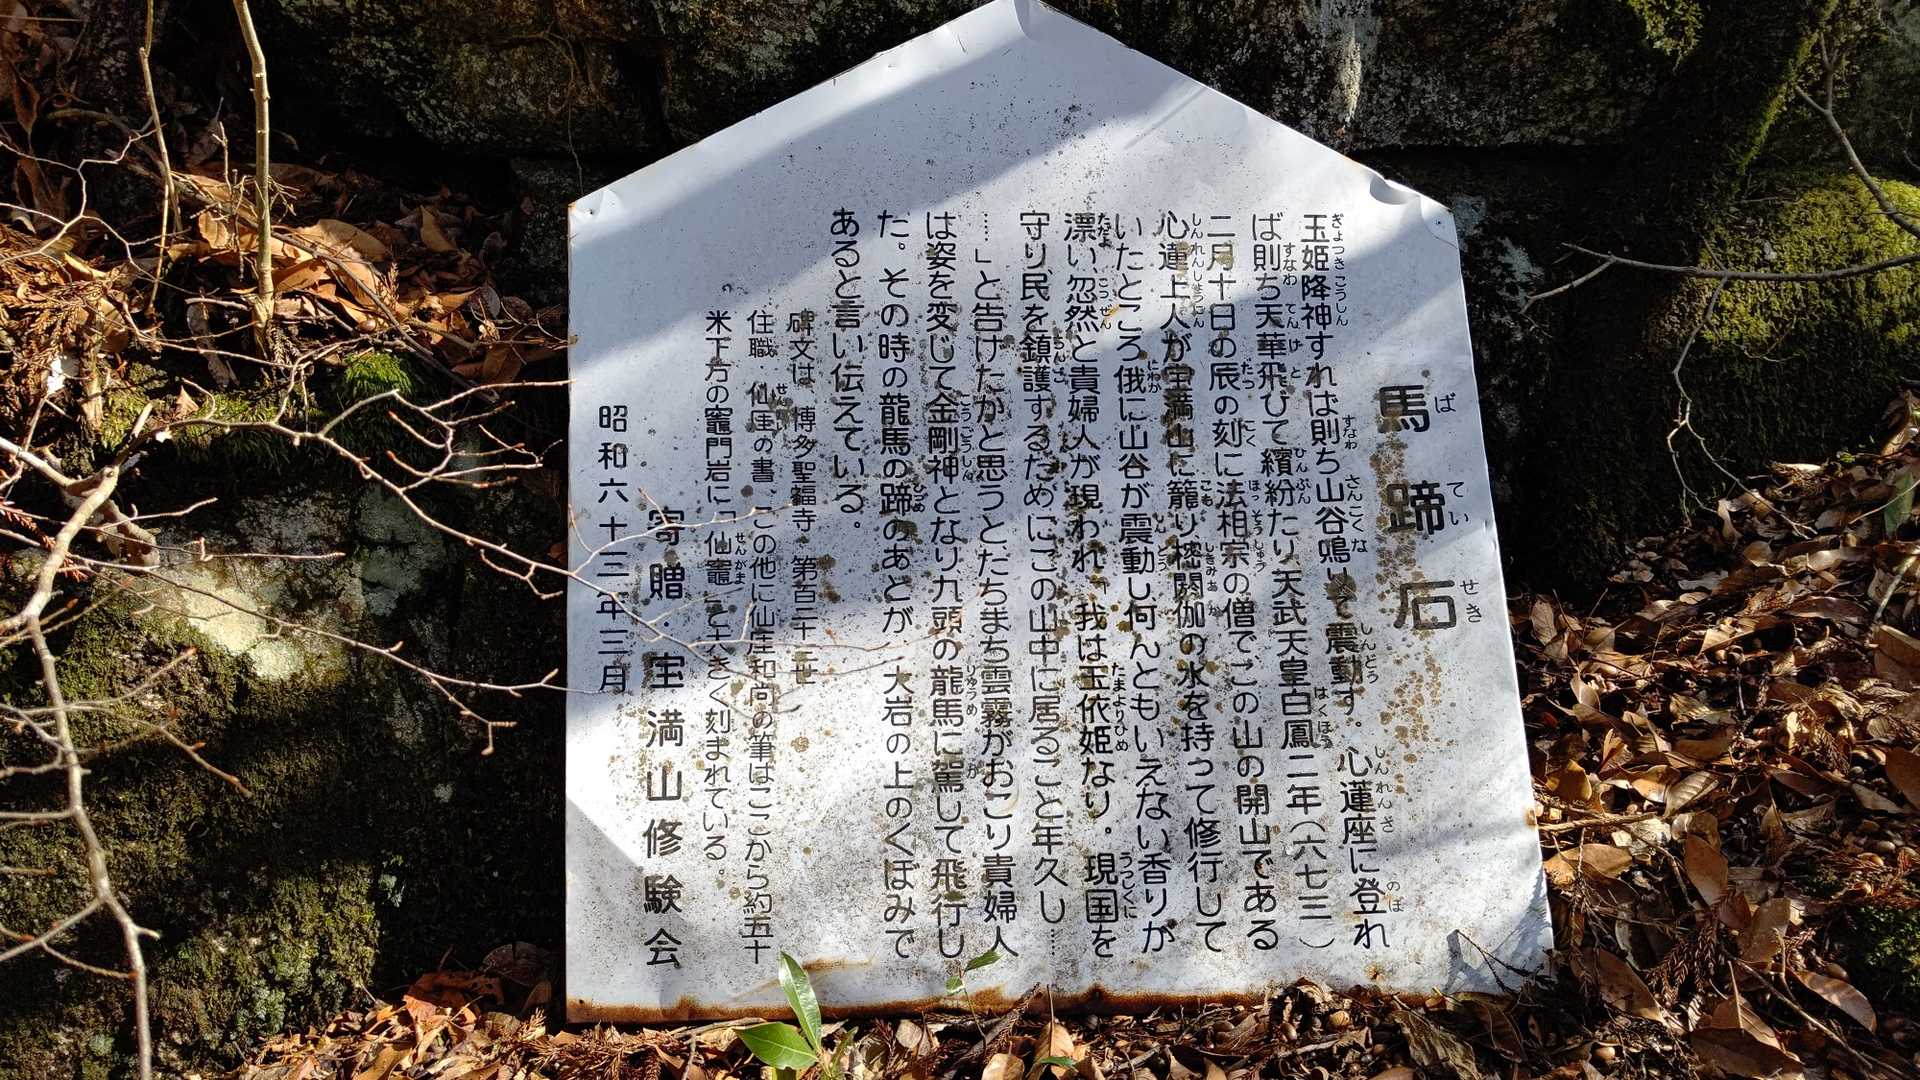 馬蹄石
玉姫降神すれば則ち山谷鳴いて震動す。心蓮座に登れ
ば則ち天華飛びて繽紛たり天武天皇白鳳二年(六七三)
二月十日の辰の刻に法相宗の僧でこの山の開山である
心蓮上人が宝満山に籠り樒閼伽の水を持って修行して
いたところ俄に山谷が震動し何んともいえない香りが
漂い忽然と貴婦人が現われ「我は玉依姫なり。現国を
守り民を鎮護するためにこの山中に居ること年久し……
……」と告げたかと思うとたちまち雲霧がおこり貴婦人
は姿を変じて金剛神となり九頭の龍馬に駕して飛行し
た。その時の龍馬の蹄のあとが 大岩の上のくぼみで
あると言い伝えている。
碑文は、博多聖福寺 第百二十三世
住職・仙厓の書、この他に仙厓和尚の筆はここから約五十
米下方の竈門岩に「仙竈」と大きく刻まれている。
寄贈・宝満山修験会
昭和六十三年三月